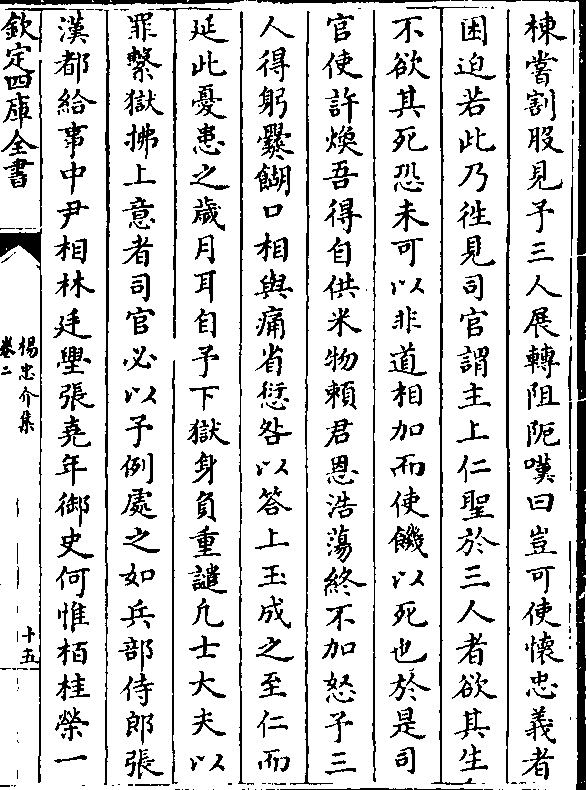 棟嘗割股見予三人展轉阻阨嘆曰豈可使懷忠義者
困迫若此乃徃見司官謂主上仁聖於三人者欲其生
不欲其死恐未可以非道相加而使饑以死也於是司
官使許煥吾得自供米物頼君恩浩蕩終不加怒予三
人得躬爨餬口相與痛省愆咎以答上玉成之至仁而
延此憂患之歲月耳自予下獄身負重譴凢士大夫以
罪繫獄拂上意者司官必以予例處之如兵部侍郎張
漢都給事中尹相林廷壆張堯年御史何惟栢桂榮一
欽定四庫全書
楊忠介集
卷二
十五